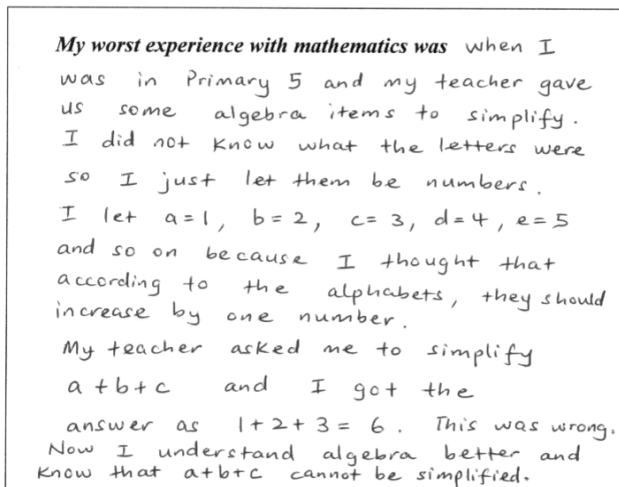 My worst experience with mathematics was when I
was in Primary 5 and my teacher gave
us some algebra items to simplify.
I did not know what the letters were
so I just let them be numbers.
I let a=1, b=2, c=3, d=4, e=5
and so on because I thought that
according to the alphabets, they should
increase by one number.
My teacher asked me to simplify
a+b+c and I got the
answer as 1+2+3=6. This was wrong.
Now I understand algebra better and
know that a+b+c cannot be simplified.